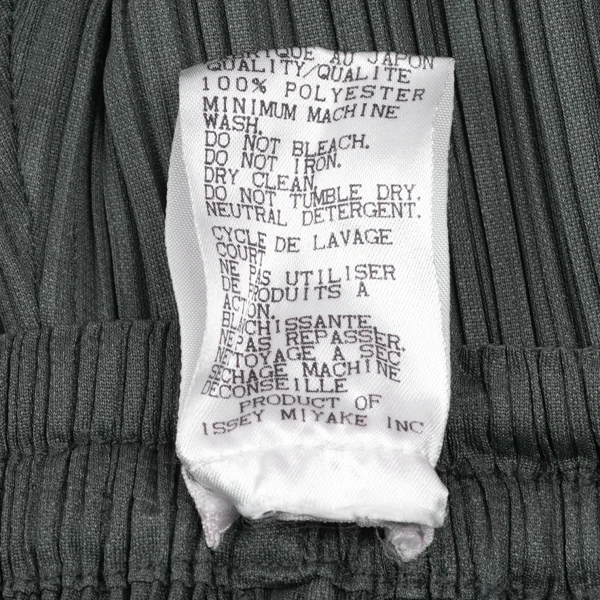 FABRIQUE AU JAPON
QUALITY/QUALITE
100% POLYESTER
MINIMUM MACHINE
WASH.
DO NOT BLEACH.
DO NOT IRON.
DRY CLEAN.
DO NOT TUMBLE DRY.
NEUTRAL DETERGENT.
CYCLE DE LAVAGE
COURT
NE PAS UTILISER
DE PRODUITS A
ACTION.
BLANCHISSANTE.
NE PAS REPASSER.
NETTOYAGE A SEC
SECHAGE MACHINE
DECONSEILLE
PRODUCT OF
ISSEY MIYAKE INC